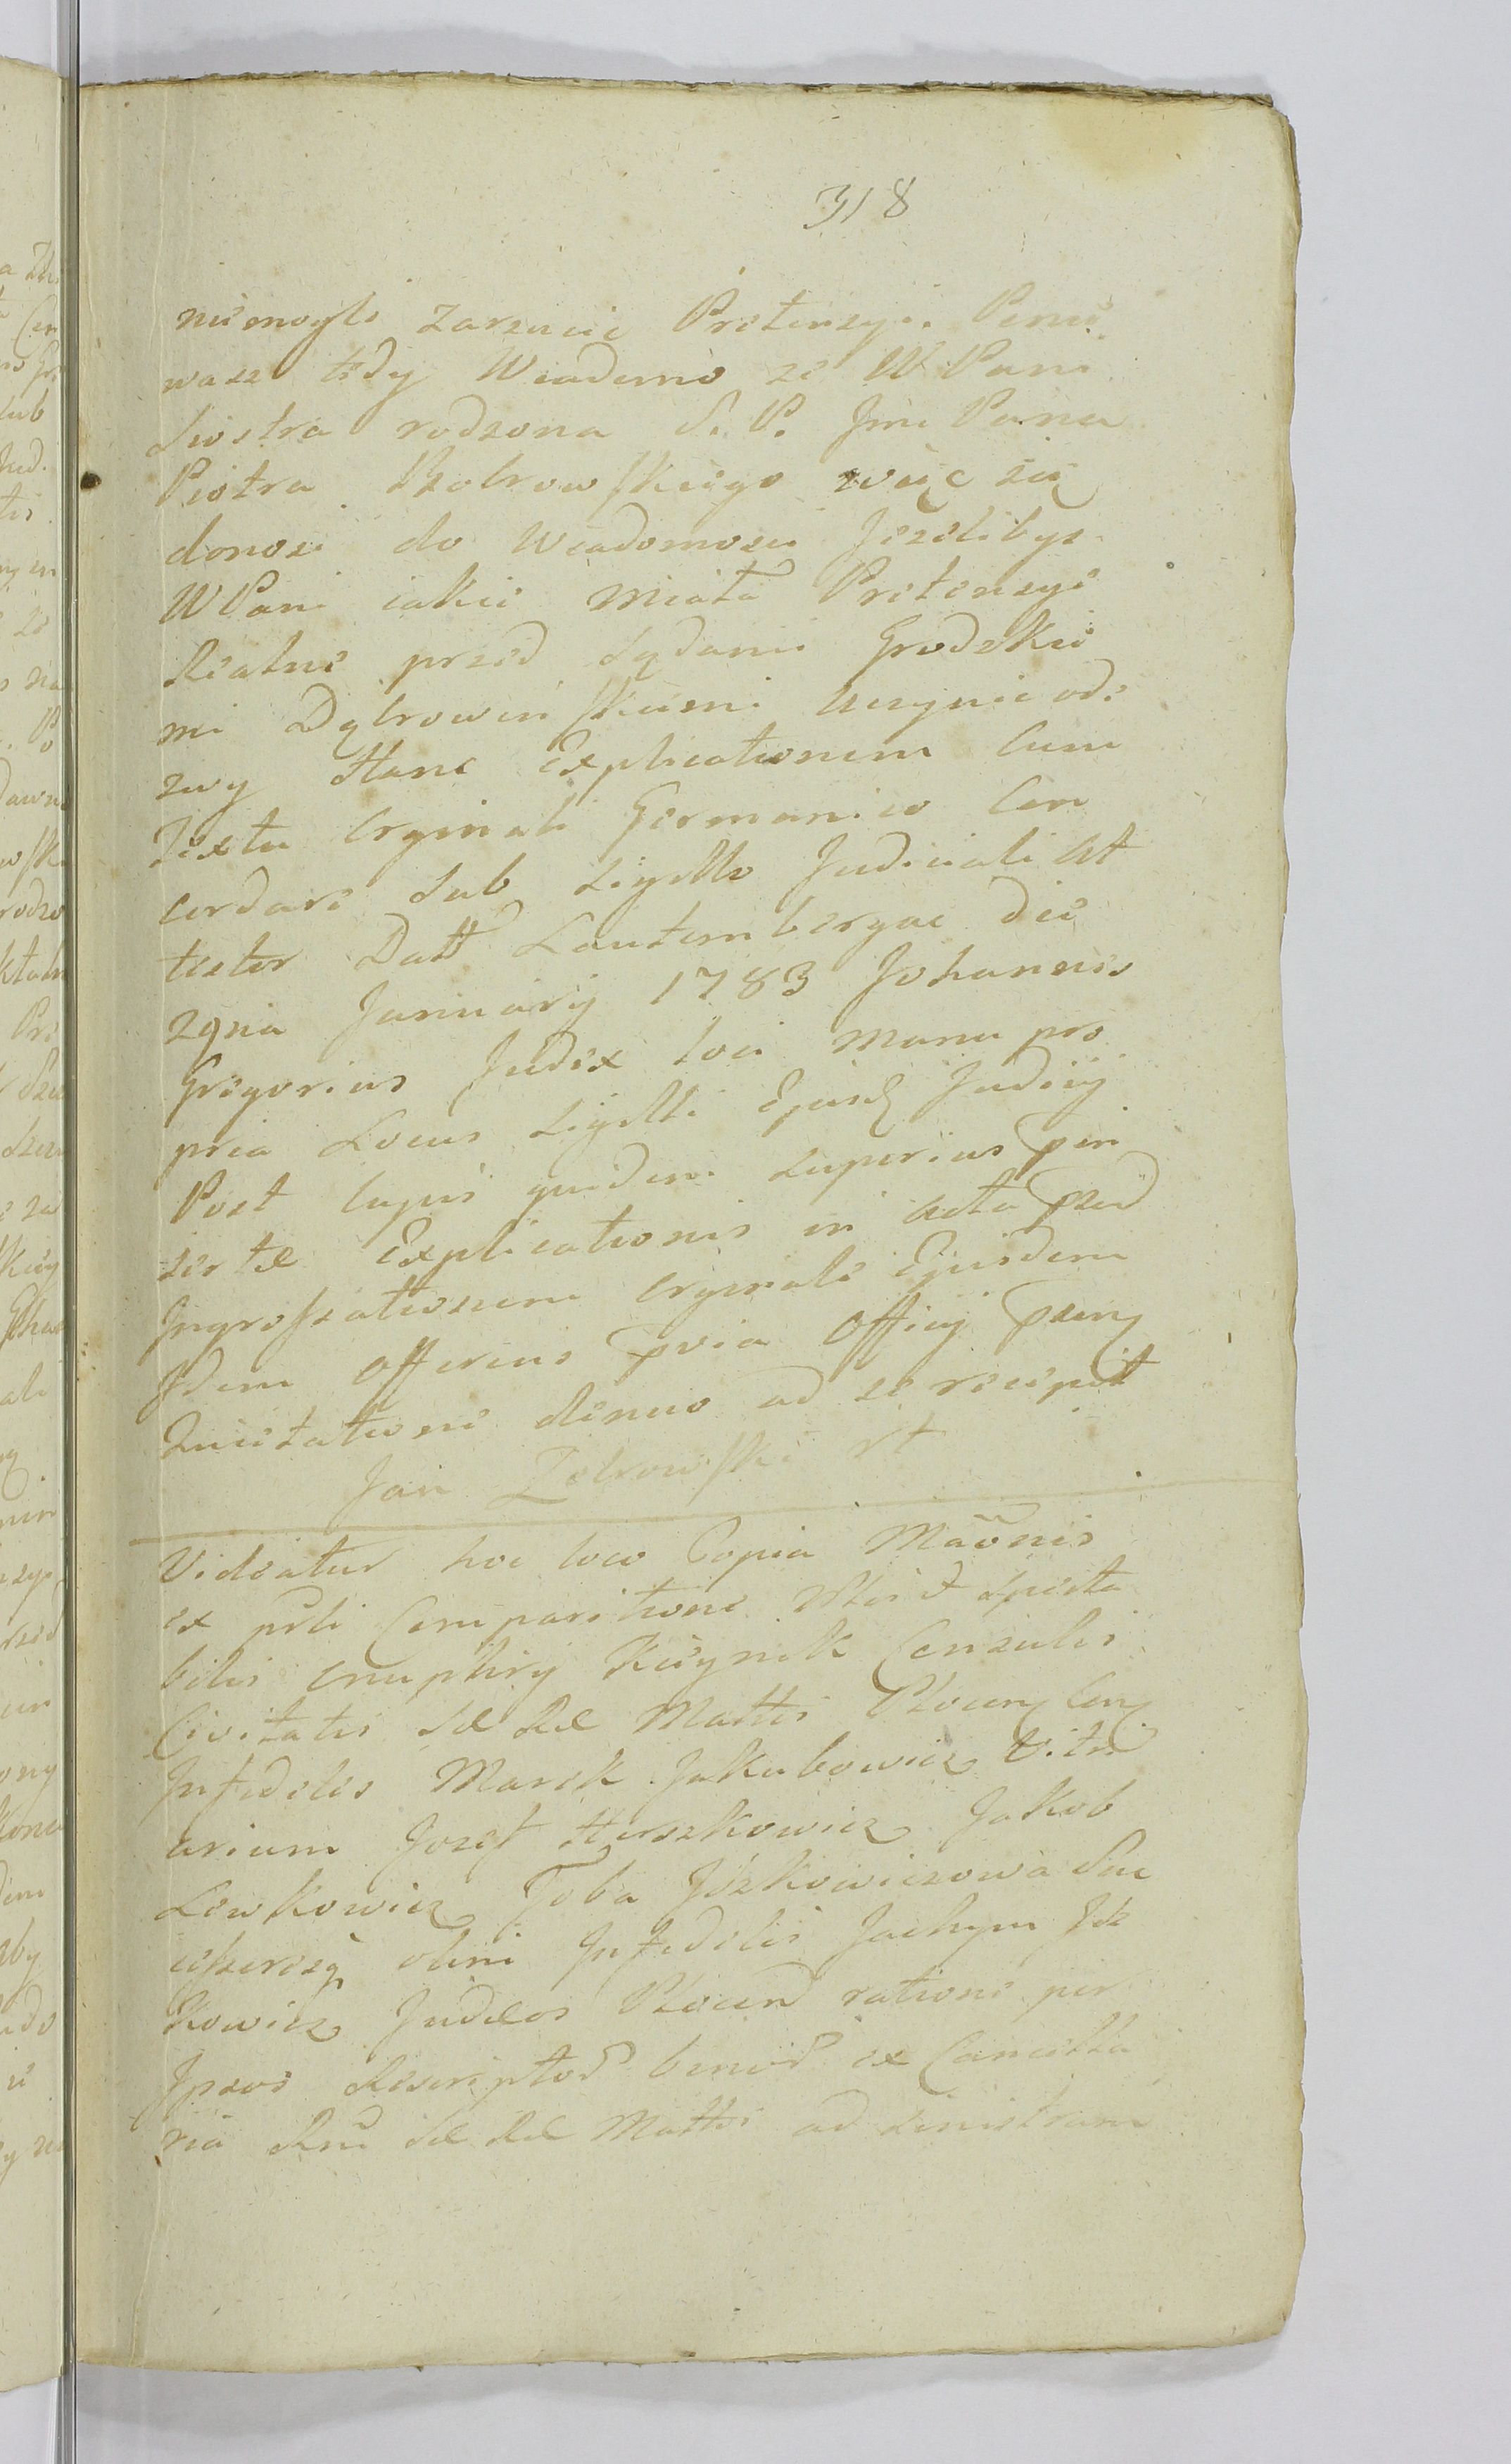 318
niemogli zarzucic Pretensyi. Ponie
wasz tedy Wiadomo ze W Pani
Siostra rodzona S. P. Jmci Pana
Piotra Bobrowskiego więc się
donosi do Wiadomosci Jezelibys
WPani iakie miała Pretensye
Realne przed Sądami Grodzkie
mi Dąbrowinskiemi uczynic ode
zwy Hanc Explicationem Cum
Textu Orginali Germanico Con
cordare Sub Sigillo Judiciali At
testor Datt Lautembergae die
29na Januarij 1783 Johannes
Gregorius Judex loci manu pro
pria Locus Sigilli Ejusd Judicij
Post cujus quidem Superius in
sertæ Explicationis in Acta
Ingrossationem Orginale Ejusdem
Idem Offerens Officij
Quietatione denuo ad se recepit
Jan Zebrowski
Videatur hoc loco Copia
ex Comparitione Specta
bilis Onuphrij Kuynik Consulis
Civitatis Sæ Ræ Mattis
Infideles Marek Jakubowicz
Jozef Herszkowicz Jakob
Lewkowicz Toba Jckowiczowa Suc
olim Infidelis Jachym Jc
kowicz Judæos ratione per
Ipsos ex Cancella
ria Sæ Ræ Mattis ad sinistram